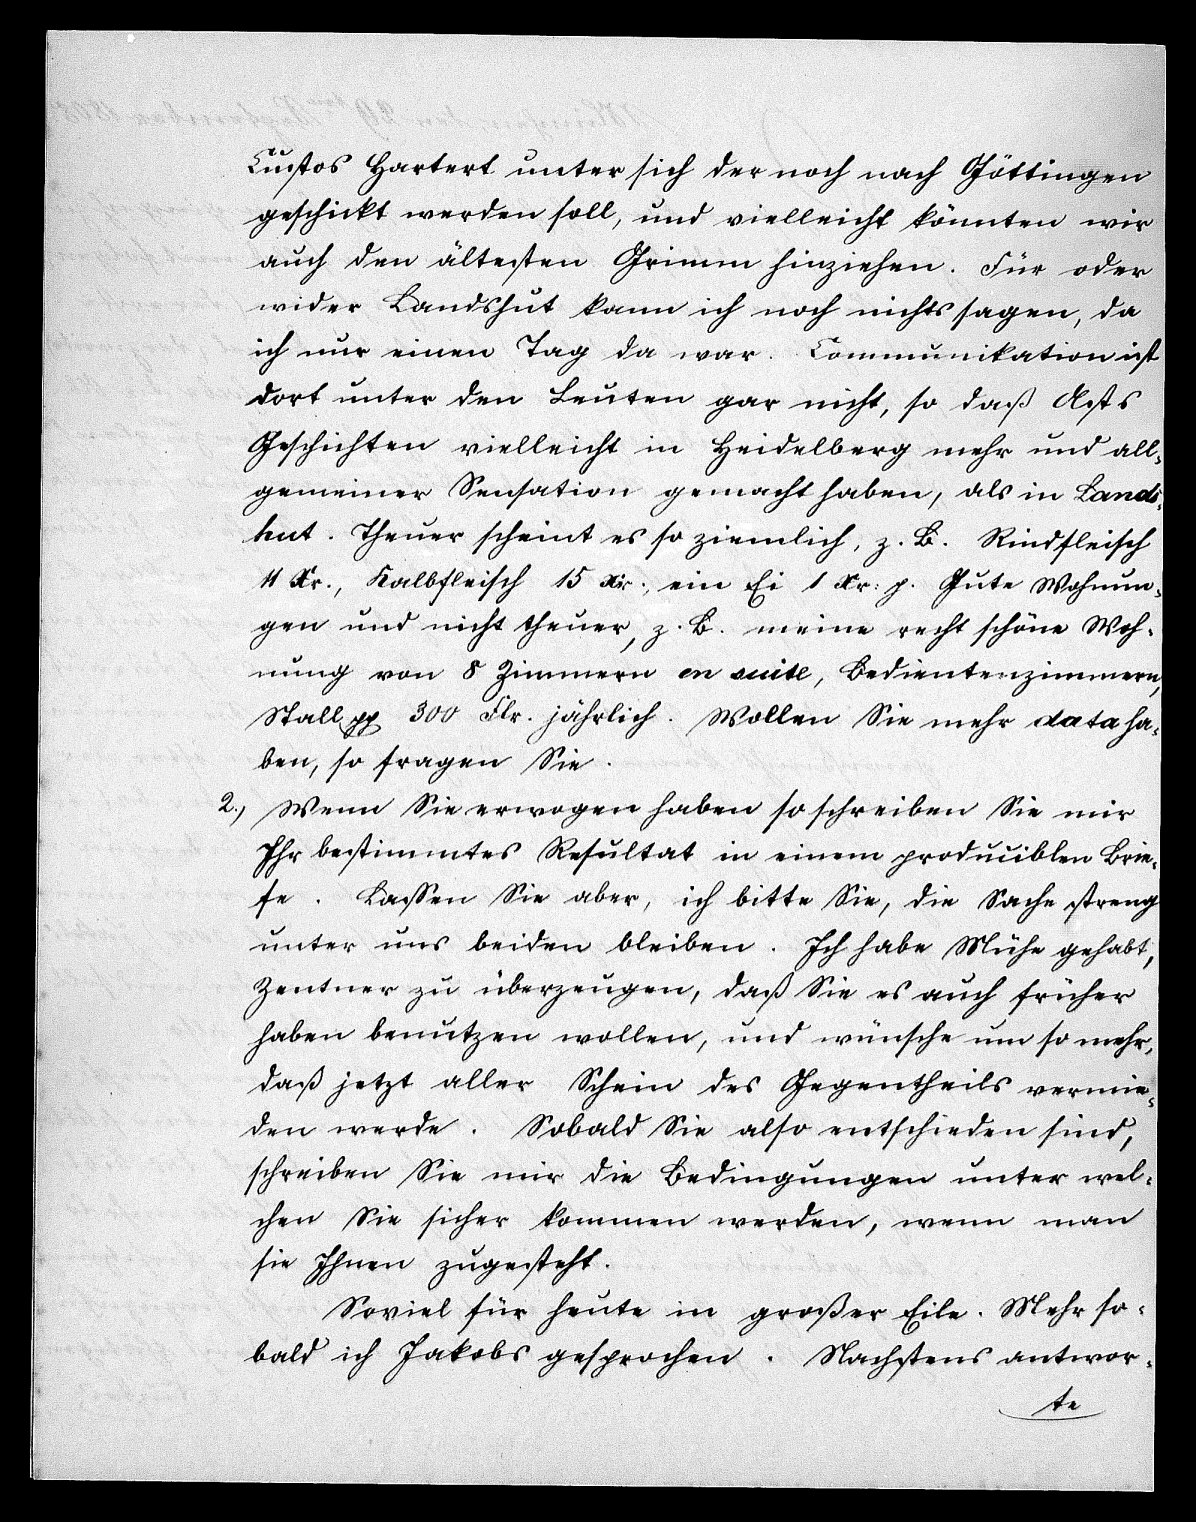 Custos Hartert unter sich der noch nach Göttingen
geschickt werden soll, und vielleicht könnten wir
auch den ältesten Grimm hinziehen. Für oder
wider Landshut kann ich noch nichts sagen, da
ich nur einen Tag da war. Communikation ist
dort unter den Leuten gar nicht, so daß Asts
Geschichten vielleicht in Heidelberg mehr und all-
gemeiner Sensation gemacht haben, als in Lands-
hut. Theuer scheint es so ziemlich, z. B. Rindfleisch
11 Xr., Kalbfleisch 15 Xr., ein Ei 1 Xr: p. Gute Wohnun-
gen und nicht theuer, z. B. meine recht schöne Woh-
nung von 8 Zimmern en suite, Bedientenzimmern,
Stall pp 300 Flr. jährlich. Wollen Sie mehr data ha-
ben, so fragen Sie.
2., Wenn Sie erwogen haben so schreiben Sie mir
Ihr bestimmtes Resultat in einem produciblen Brie-
fe. Lassen Sie aber, ich bitte Sie, die Sache streng
unter uns beiden bleiben. Ich habe Mühe gehabt,
Zentner zu überzeugen, daß Sie es auch früher
haben benutzen wollen, und wünsche um so mehr,
daß jetzt aller Schein des Gegentheils vermie-
den werde. Sobald Sie also entschieden sind,
schreiben Sie mir die Bedingungen unter wel-
chen Sie sicher kommen werden, wenn man
sie Ihnen zugesteht.
Soviel für heute in großer Eile. Mehr so-
bald ich Jakobs gesprochen. Nachstens antwor-
te